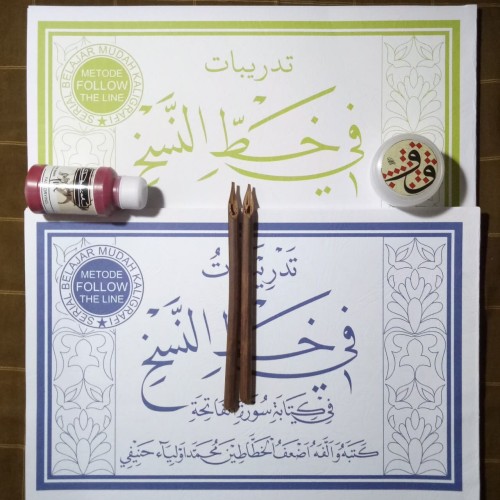 تدريبات
في خط النسخ
SERIAL BELAJAR MUDAH KALIGRAFI
METODE
FOLLOW
THE LINE
تَدْرِيبَات
في خط النسخ
SERIAL BELAJAR MUDAH KALIGRAFI
METODE
FOLLOW
THE LINE
في كتابة سورة الفاتحة
كتبه وألفه أضعف الخطاطين محمد أولياء حنيفي